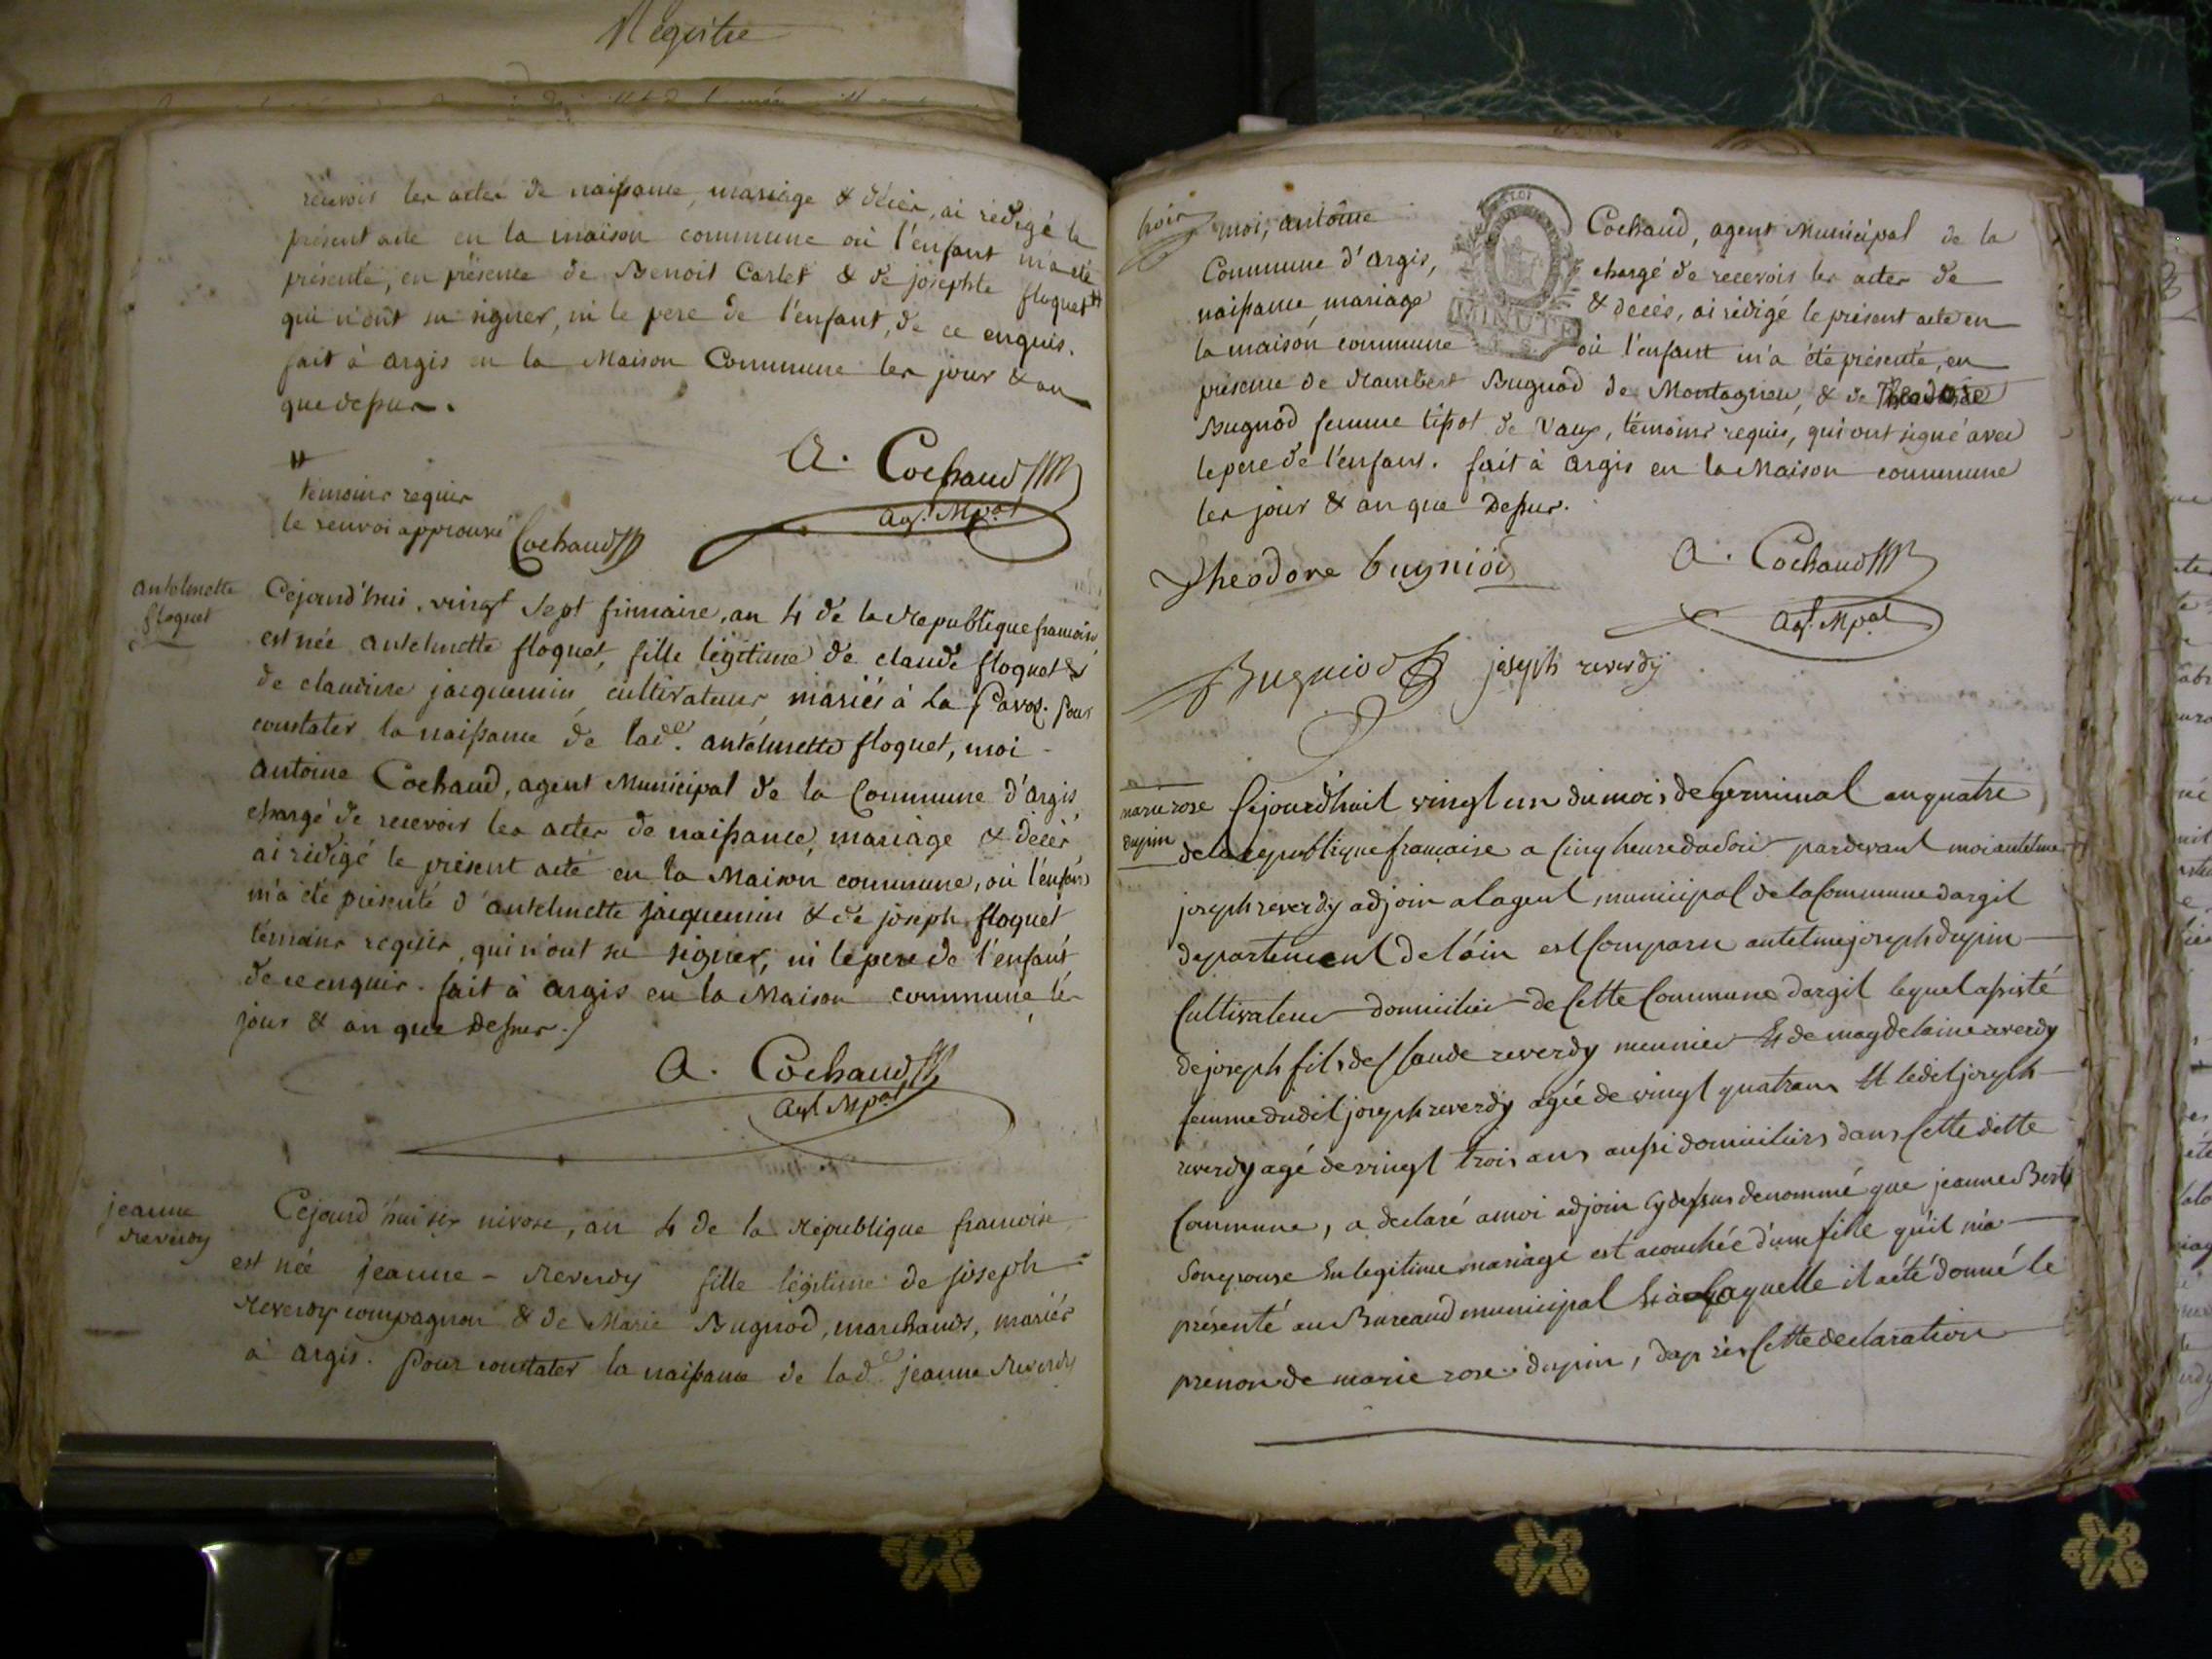 Registre
recevoir les actes de naissance, mariage & décès, ai rédigé le
présent acte en la maison commune où l'enfant m'a été
présenté, en présence de Benoit Carlet & de josephte floquet #
qui n'ont su signer, ni le pere de l'enfant, de ce enquis.
fait à argis en la Maison Commune les jour & an
que dessus.
A. Cochaud
Agt. Mpal
#
témoins requis
le renvoi approuvé Cochaud
antelmette
floquet
Cejourd'hui, vingt sept frimaire, an 4 de la Republique francoise,
est née antelmette floquet, fille légitime de claude floquet &
de claudine jacquemin, cultivateurs mariés à La Pavoz. pour
constater la naissance de lade. antelmette floquet, moi -
antoine Cochaud, agent Municipal de la Commune d'Argis,
chargé de recevoir les actes de naissance, mariage & décès,
ai rédigé le présent acte en la Maison commune, où l'enfant
m'a été présenté d'antelmette jacquemin & de joseph floquet
témoins requis, qui n'ont su signer, ni le pere de l'enfant
de ce enquis. fait à Argis en la Maison commune les
jour & an que dessus./
A. Cochaud
Agt Mpal
jeanne
Reverdy
Cejourd'hui six nivose, an 4 de la République francoise
est née jeanne - Reverdy fille légitime de joseph -
Reverdy compagnon & de Marie Bugnod, marchands, mariés
à Argis. pour constater la naissance de lade jeanne Reverdy
moi, antoine Cochaud, agent Municipal de la
Commune d'argis, chargé de recevoir les actes de
naissance, mariage & décès, ai rédigé le présent acte en
MINUTE
la maison commune où l'enfant m'a été présenté, en
présence de Rambert Bugnod de Montagnieu, & de Theodore
Bugnod femme tissot de Vaux, témoins requis, qui ont signé avec
le pere de l'enfant. fait à Argis en la Maison commune
les jour & an que Dessus.
Theodore bugniod
A. Cochaud
Agt. Mpal
Bugniod joseph reverdy
marie rose
dupin
Cejourd'huit vingt un du mois de Germinal an quatre
de la republique francaise a cinq heure du soir pardevant moi antelme
joseph reverdy adjoin a lagent municipal de la Commune dargit
departement de l'ain est Comparu antelme joseph dupin
Cultivateur domicilier de Cette Commune dargit lequel assisté
de joseph fils de Claude reverdy meunier Et de magdelaine reverdy
femme dudit joseph reverdy agée de vingt quatre ans Et ledit joseph
reverdy agé de vingt trois ans aussi domiciliers dans Cette ditte
Commune, a declaré a moi adjoin Cy dessus denommé que jeanne Bert
son epouse En legitime mariage est acouchée d'une fille qu'il m'a
présenté au Bureaud municipal Et à Laquelle il a été donné le
prenon de marie rose dupin, dap rès Cette declaration